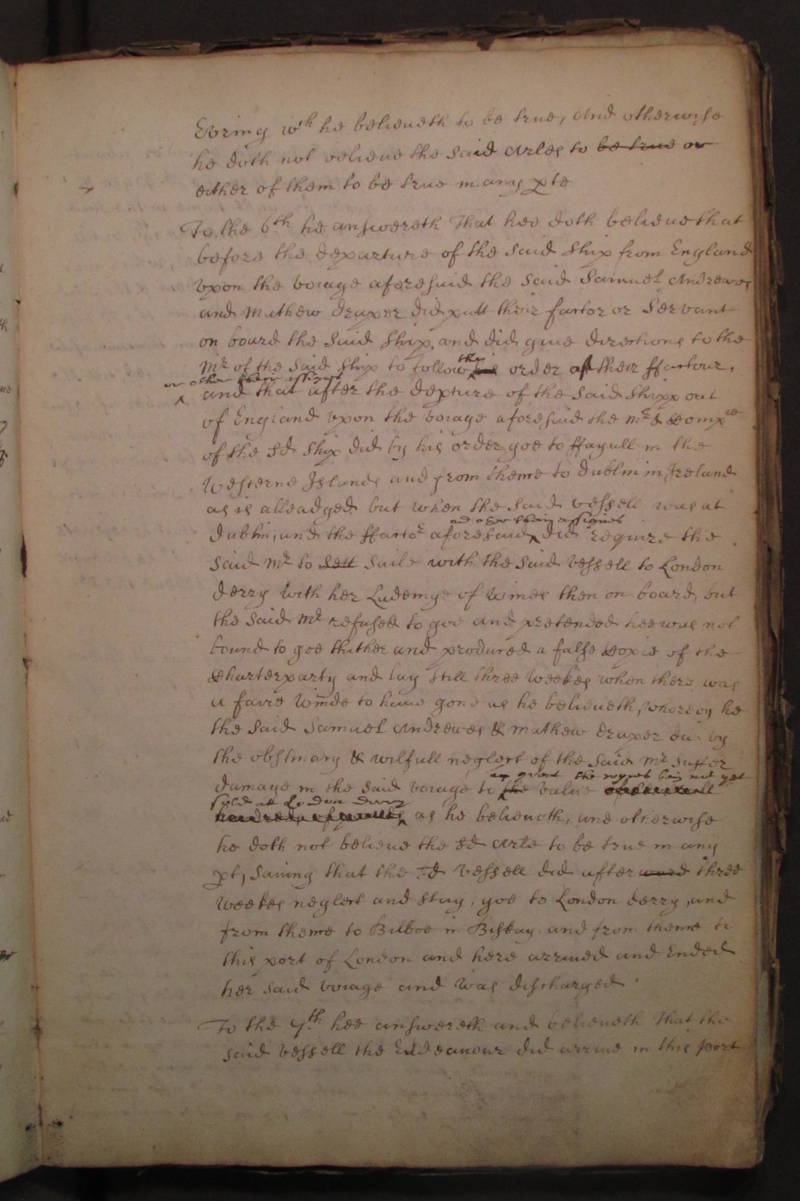 Evring wch he believeth to be true, And otherwise
he doth not believe the said Arles to be true or
either of them to be true in any pte
To the 6th he answereth That hee doth believe that
before the departure of the said ship from England
vpon the voiage aforesaid the said Samuel Andrewes
and Mathew Draper did putt their factor or Servant
on board the said ship, and did give directions to the
Mr of the said ship to follow the order of their ffactour,
or other their assignes
and that after the depture of the said shipp out
of England vpon the voiage aforesaid the mr & Compae
of the sd ship did by his order goe to ffayall in the
Westerne Islands and from thence to Dublin in Ireland
as is alleadged but when the said vessell was at
and other their assignes
Dublin, and the ffactor aforesaid did require the
said Mr to sett saile with the said vessell to London
derry with her Ladeinge of wines then on board, but
the said Mr refused to goe and pretended hee was not
bound to goe thither and produced a false Copie of the
Charterparty and lay still three weekes when there was
a faire winde to have gone as he believeth, whereby he
the said Samuel Andrewes & Mathew Draper did by
the obstinacy & wilfull neglect of the said Mr suffer
the not yet
damage in the said voiage to the value
sold at London Derry
as he believeth, and otherwise
he doth not believe the sd Arle to be true in any
pt, Saving that the sd vessell did after three
weekes neglect and stay, goe to London derry, and
from thence to Bilboe in Biskay and from thence to
this port of London and here arrived and Ended
her said voiage and was discharged
To the 7th hee answereth and believeth That the
said vessell the Endeavour did arrive in this port